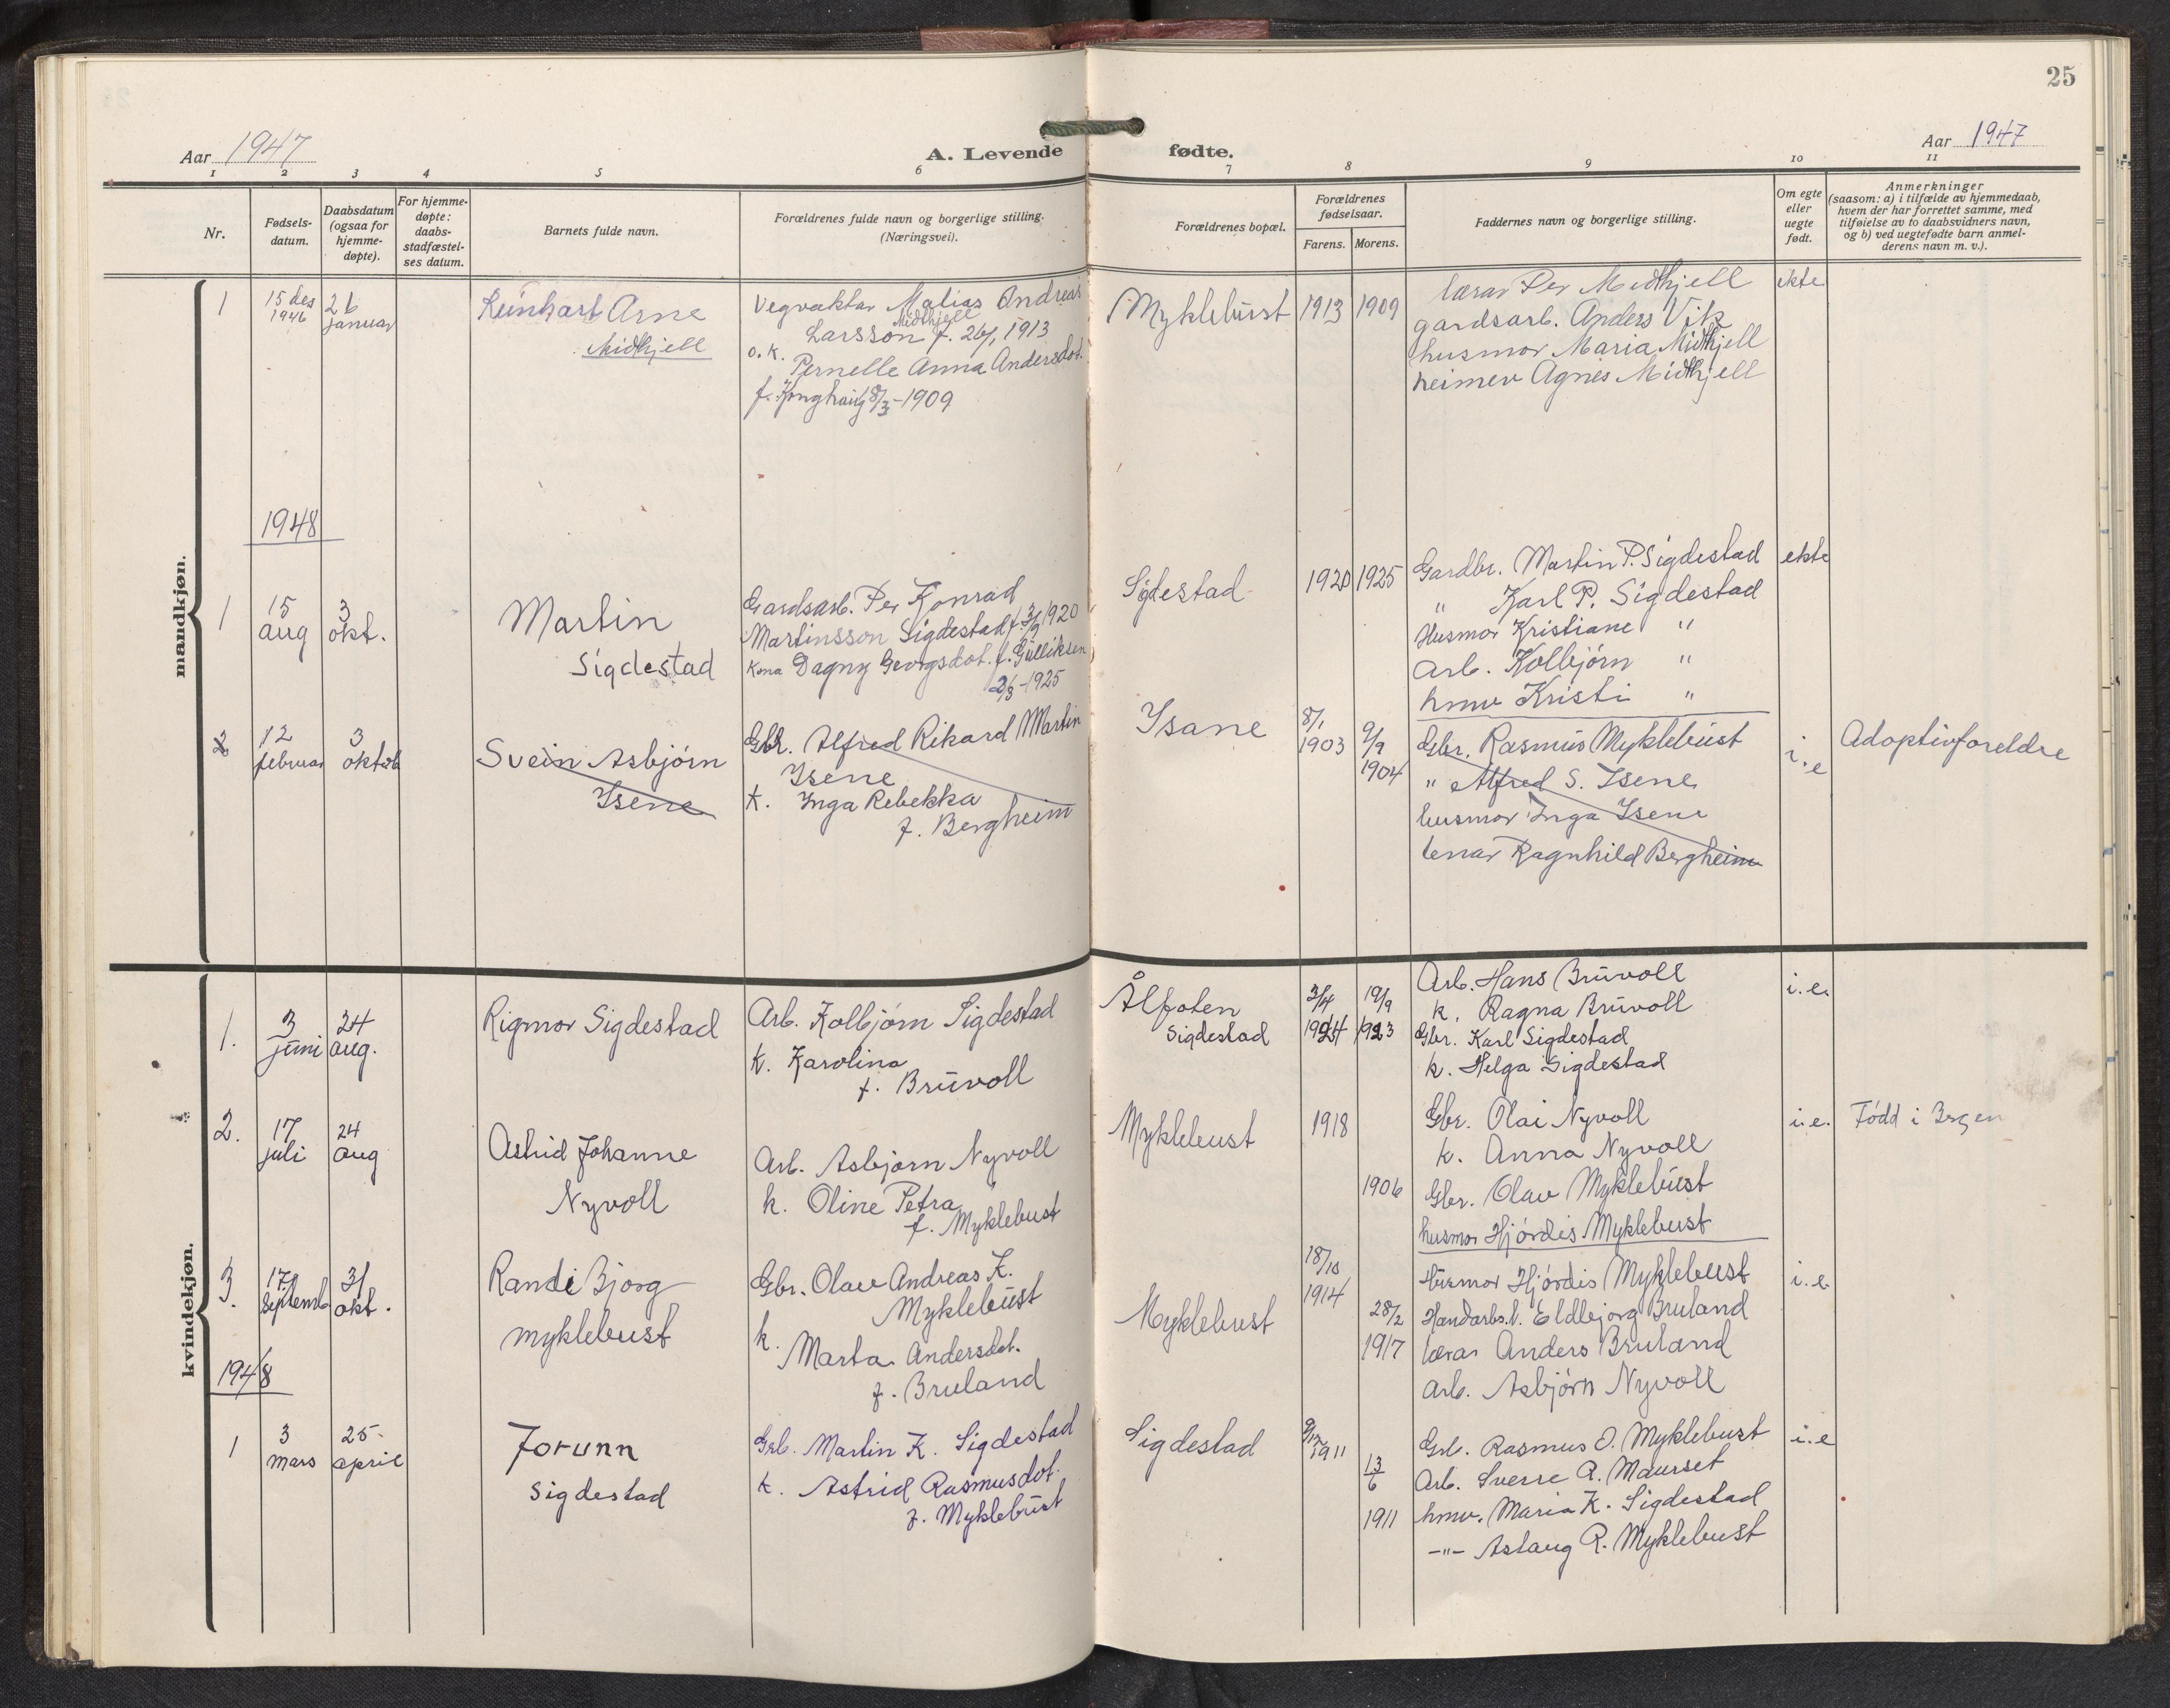 25
Aar 1947
A. Levende fødte.
Aar 1947
1 2 3 4 5 6 7 8 9 10 11
Nr.
Fødsels-
datum.
Daabsdatum
(ogsaa for
hjemme-
døpte).
For hjemme-
døpte:
daabs-
stadfæstel-
ses datum.
Barnets fulde navn.
Forældrenes fulde navn og borgerlige stilling.
(Næringsvei).
Forældrenes bopæl.
Forældrenes
fødselsaar.
Farens. Morens.
Faddernes navn og borgerlige stilling.
Om egte
eller
uegte
født.
Anmerkninger
(saasom: a) i tilfælde av hjemmedaab,
hvem der har forrettet samme, med
tilføielse av to daabsvidners navn,
og b) ved uegtefødte barn anmel-
derens navn m. v.).
mandkjøn.
1
15 des
1946
26
januar
Reinhart Arne
Midthjell
Vegvaktar Matias Andreas
Midthjell
Larsson f. 26/1 1913
o. k. Pernelle Anna Andersdot.
f. 8/3-1909
Myklebust
1913
1909
lærar Per Midthjell
gardsarb. Anders Vik
husmor Maria Midthjell
heimev Agnes Midthjell
ekte
1948
1
15
aug
3
okt.
Martin
Sigdestad
Gardsarb. Per Konrad
Martinsson Sigdestad f. 3/9 1920
kona Dagny Georgsdot. f. Gulliksen
2/3-1925
Sigdestad
1920
1925
Gardbr. Martin P. Sigdestad
" Karl P. Sigdestad
Husmor Kristiane "
Arb. Kolbjørn "
hmv Kristi "
ekte
2
12
februar
3
oktob
Svein Asbjørn
Isene
Gbr. Alfred Rikard Martin
Isene
k. Inga Rebekka
f. Bergheim
Isane
8/1
1903
9/9
1904
Gbr. Rasmus Myklebust
" Alfred S. Isene
husmor Inga Isene
Ragnhild Bergheim
i. e
Adoptivforeldre
kvindekjøn.
1.
3
juni
24
aug.
Rigmor Sigdestad
Arb. Kolbjørn Sigdestad
k. Karolina
f. Bruvoll
Ålfoten
Sigdestad
3/4
1924
19/9
1923
Arb. Hans Bruvoll
k. Ragna Bruvoll
Gbr. Karl Sigdestad
k. Helga Sigdestad
i. e.
2.
17
juli
24
aug
Astrid Johanne
Nyvoll
Arb. Asbjørn Nyvoll
k. Oline Petra
f. Myklebust
Myklebust
1918
1906
Gbr. Olai Nyvoll
k. Anna Nyvoll
Gbr. Olav Myklebust
husmor Hjørdis Myklebust
i. e.
Fødd i Bergen
3.
17
Septemb
31
okt.
Randi Bjørg
myklebust
Gbr. Olav Andreas K.
Myklebust
k.
Marta Andersdot.
f. Bruland
Myklebust
18/10
1914
28/2
1917
Husmor Hjørdis Myklebust
Handarb.l. Eldbjørg Bruland
lærar Anders Bruland
Arb. Asbjørn Nyvoll
i. e.
1948
1
3
mars
25
april
Jorunn
Sigdestad
Grb. Martin K. Sigdestad
k. Astrid Rasmusdot.
f. Myklebust
Sigdestad
9/12
1911
13
6
1911
Grb. Rasmus O. Myklebust
Arb. Sverre R. Maurset
hmv. Maria K. Sigdestad
-"- Aslaug R. Myklebust
i. e